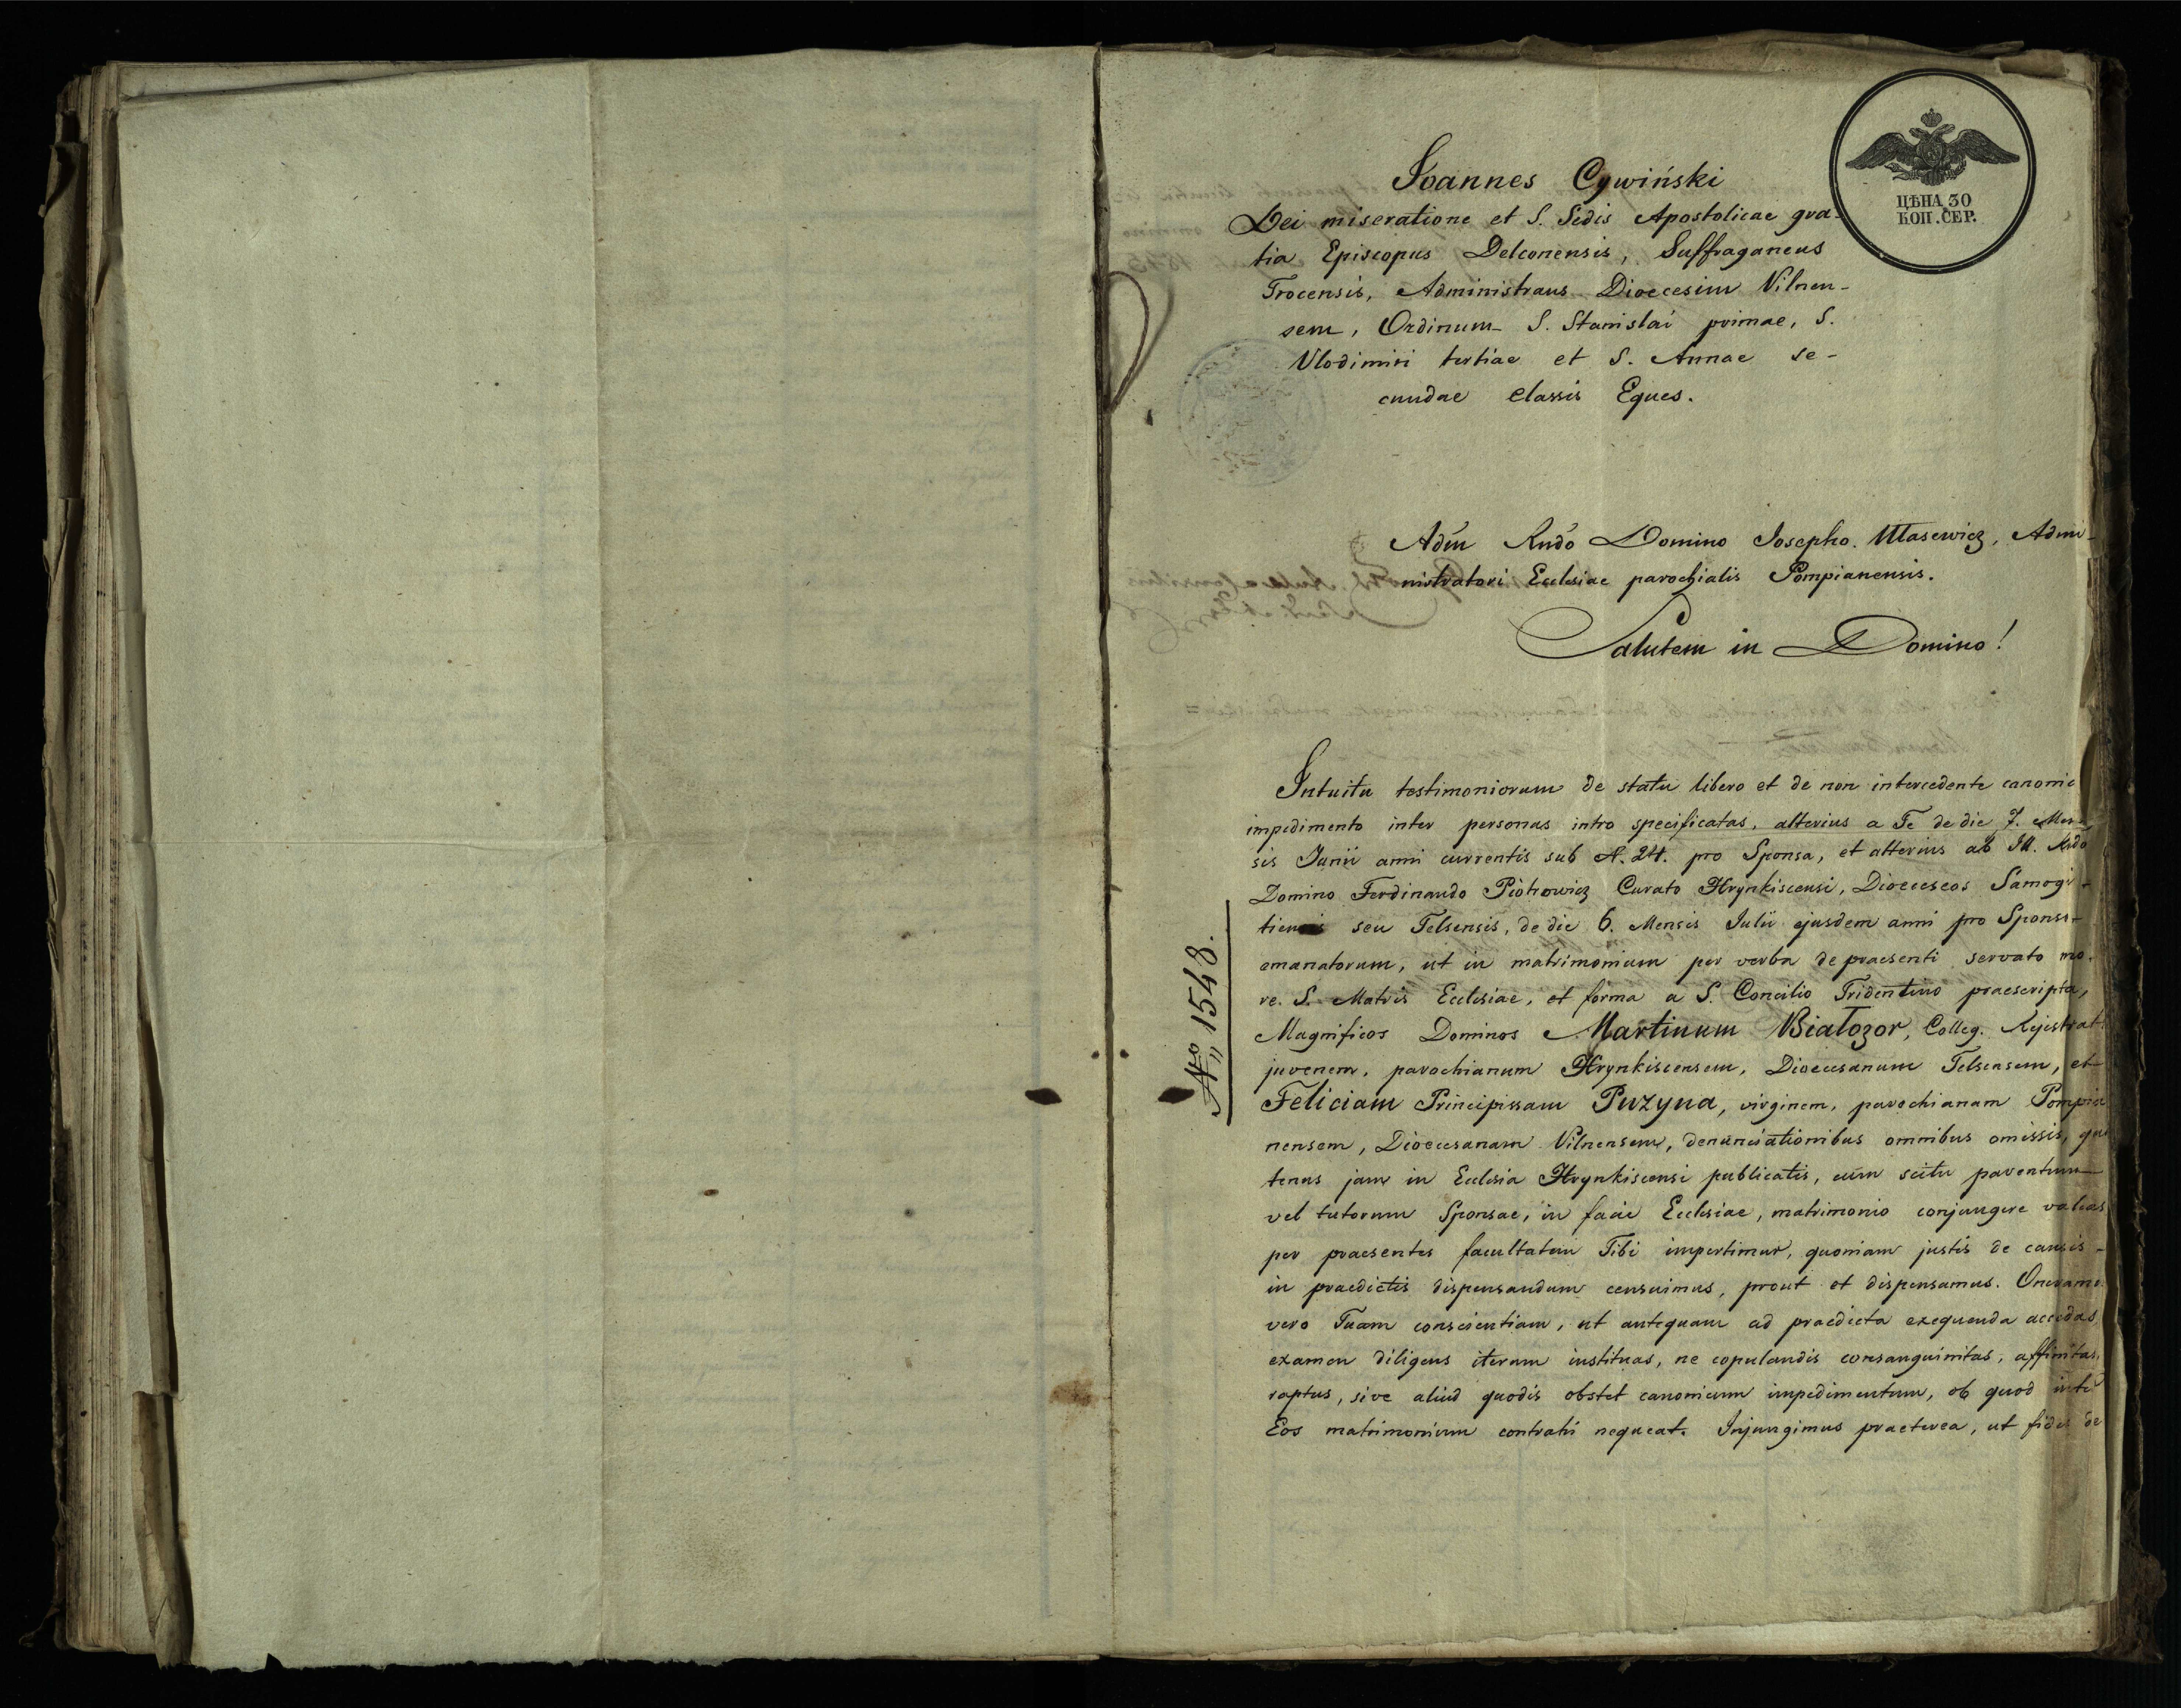 Joannes Cywiński
Dei miseratione et S. Sedis Apostolicae gra-
tia Episcopus Delconensis, Suffraganeus
Trocensis, Administrans Dioecesim Vilnen-
sem, Ordinum S. Stanislai primae, S.
Vlodimiri tertiae et S. Annae se-
cundae Classis Eques.
ЦѢНА 30
КОП. СЕР.
Adm Rndo Domino Josepho Utasewicz, Admi-
nistratori Ecclesiae parochialis Pompianensis.
Salutem in Domino!
Intuitu testimoniorum de statu libero et de non intercedente canonic
impedimento inter personas intro specificatas, alterius a Te de die 7. Men-
sis Junii anni currentis sub N. 24. pro Sponsa, et alterius ab Ill. Rndo
Domino Ferdinando Piotrowicz Curato Hrynkiscensi, Dioeceseos Samogi-
tiensis seu Telsensis, de die 6. Mensis Julii ejusdem anni pro Sponso
emanatorum, ut in matrimonium per verba de praesenti servato mo-
re S. Matris Ecclesiae, et forma a S. Concilio Tridentino praescripta,
Magnificos Dominos Martinum Białozor, Colleg. Rejestrat.
juvenem, parochianum Hrynkiscensem, Dioecesanum Telsensem, et
Feliciam Principissam Puzyna, virginem, parochianam Pompia
nensem, Dioecesanam Vilnensem, denunciationibus omnibus omissis, qua
tenus jam in Ecclesia Hrynkiscensi publicatis, cum scitu parentum
vel tutorum Sponsae, in facie Ecclesiae, matrimonio conjungere valeas
per praesentes facultatem Tibi impertimur, quoniam justis de causis
in praedictis dispensandum censuimus, prout et dispensamus. Oneramus
vero Tuam conscientiam, ut antequam ad praedicta exequenda accedas,
examen diligens iterum instituas, ne copulandis consanguinitas, affinitas,
raptus, sive aliud quodis obstet canonicum impedimentum, ob quod inter
Eos matrimonium contrahi nequeat. Injungimus praeterea, ut fides de
Nro 1548.